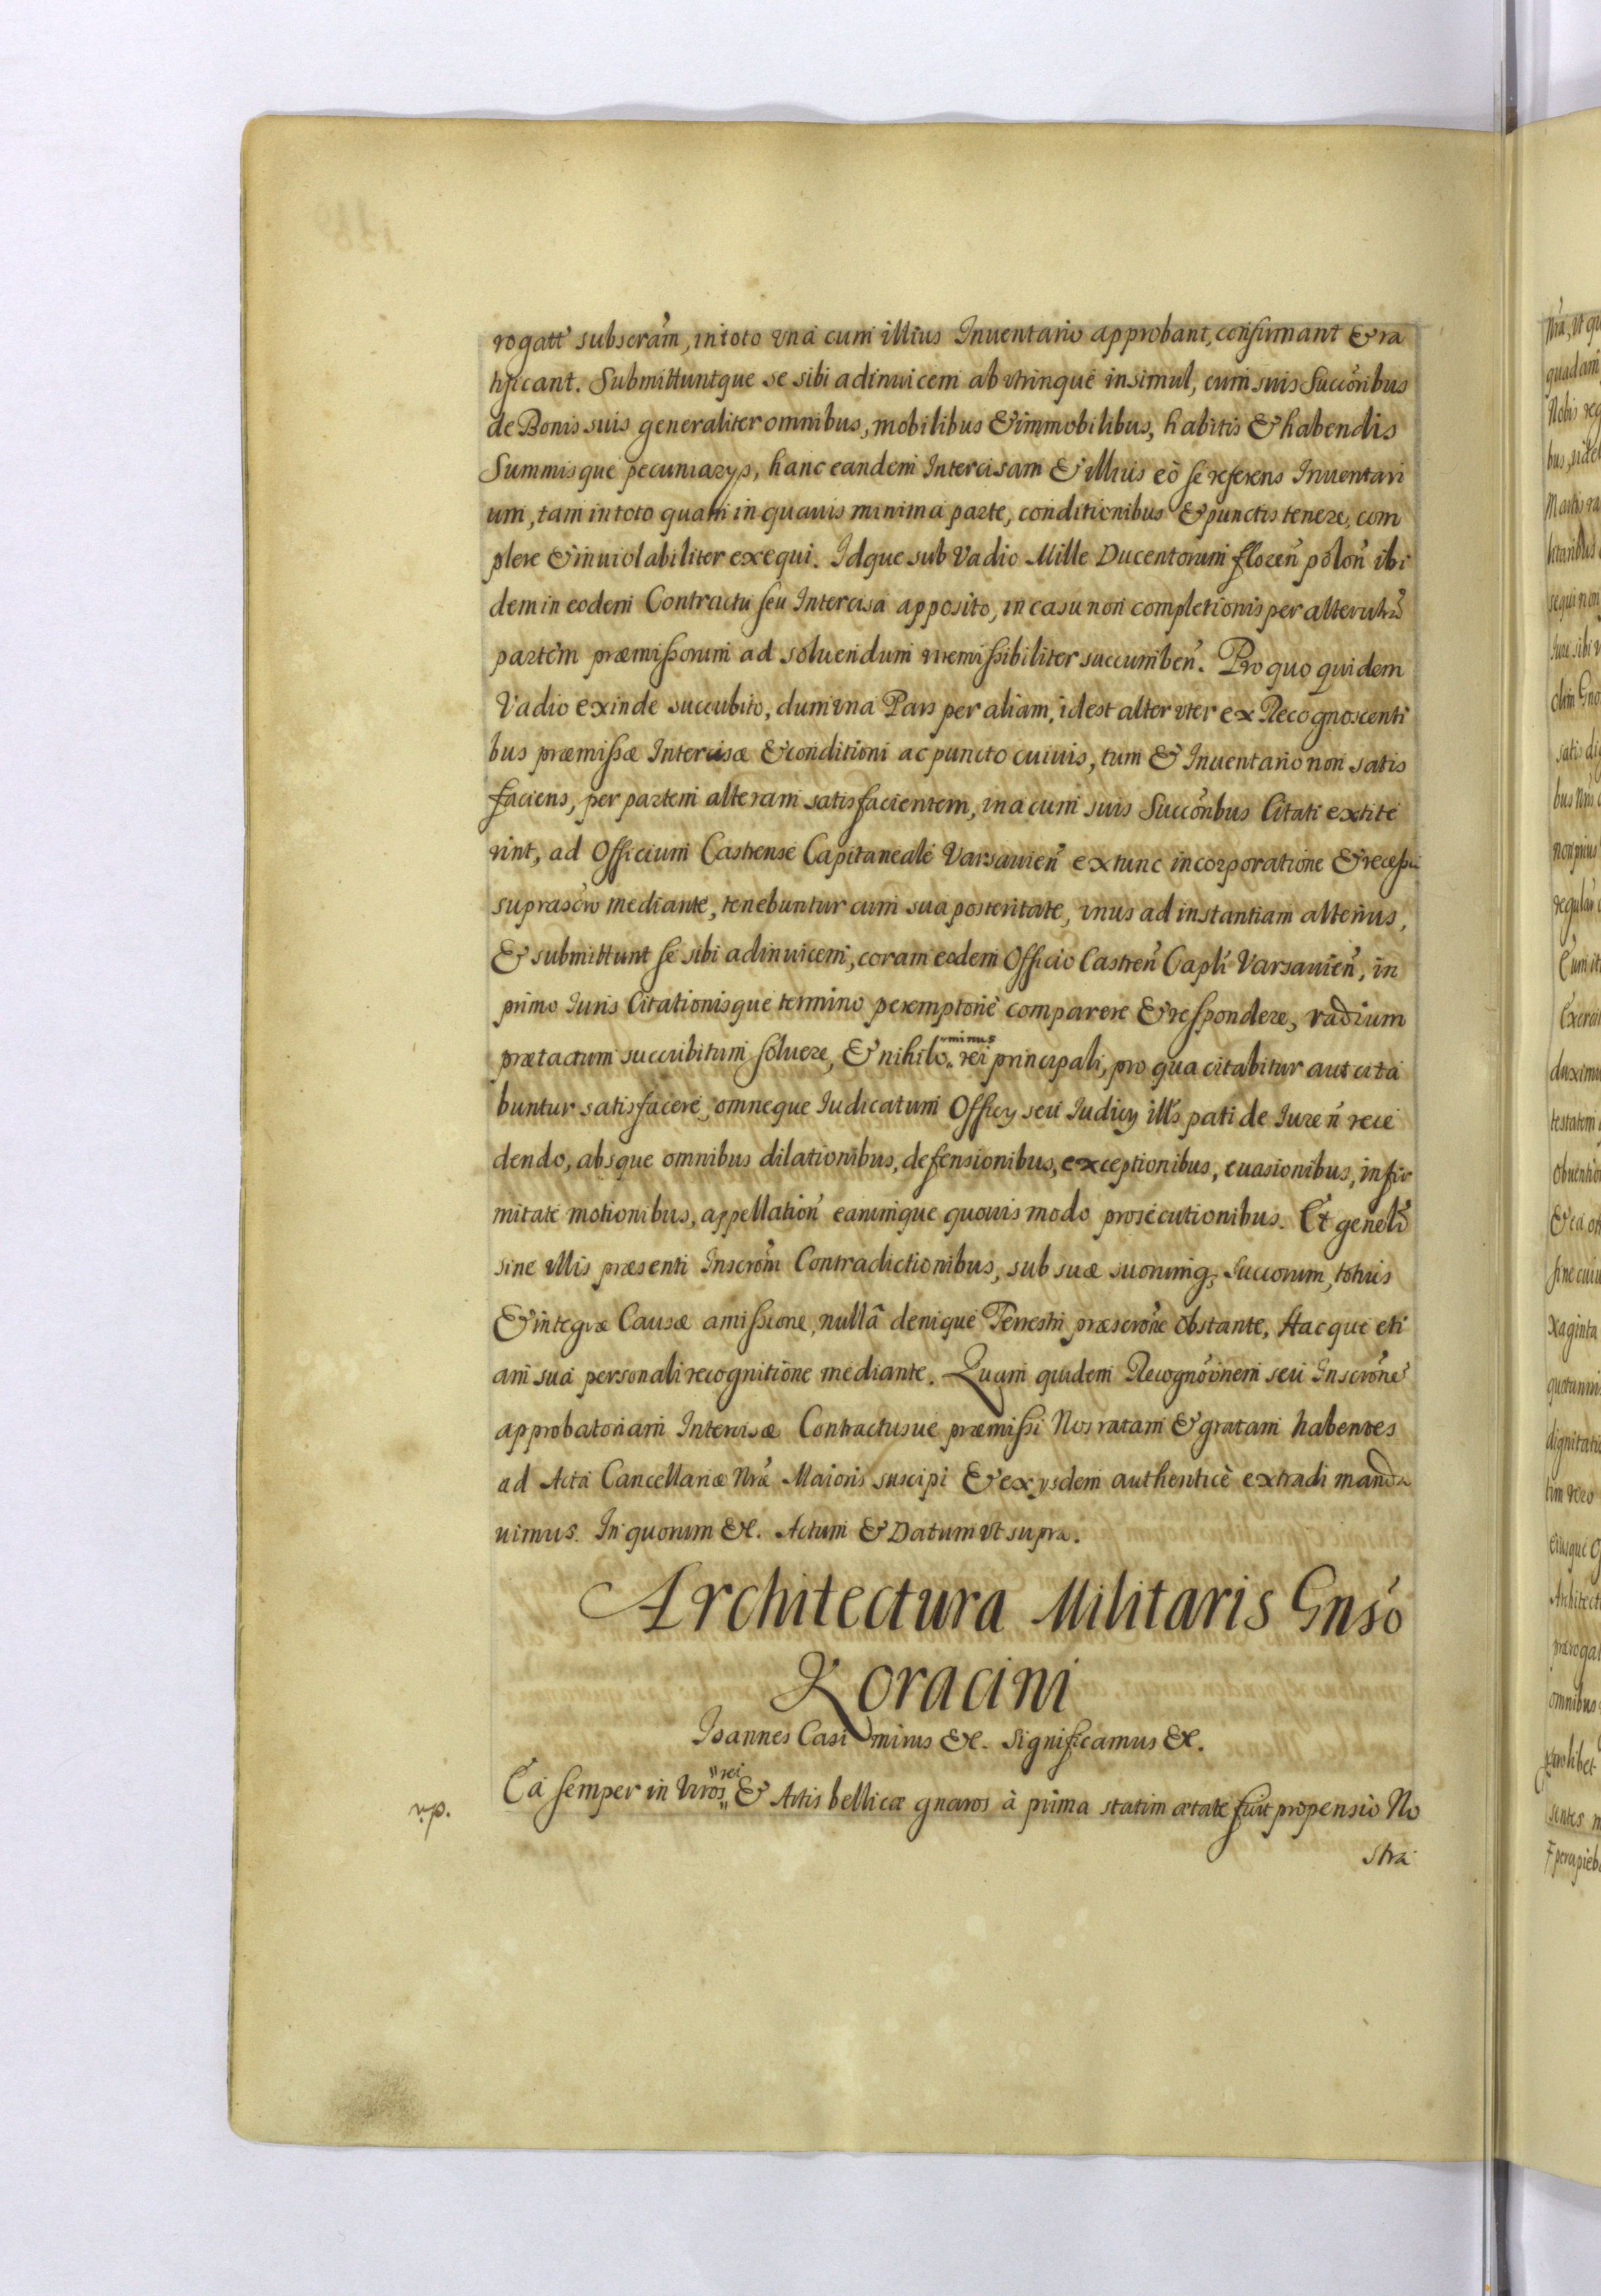 rogatt subscram, in toto vna cum illius Inuentario approbant, confirmant & ra
tificant. Submittuntque se sibi adinuicem ab vtrinque insimul, cum suis Succoribus
de Bonis suis generaliter omnibus, mobilibus & immobilibus, habitis & habendis
Summisque pecuniarys, hanc eandem Intercisam & illius eo se referens Inuentari
um, tam in toto quam in quauis minima parte, conditionibus & punctis tenere, com
plere & inuiolabiliter exequi. Idque sub Vadio Mille Ducentorum floren polon ibi
dem in eodem Contractu seu Intercisa apposito, in casu non completionis per alterutrũ
partem præmissorum ad soluendum irremissibiliter succumben. Pro quo quidem
Vadio exinde succubito, dum vna Pars per aliam, id est alter vter ex Recognoscenti
bus præmissæ Intercisæ & conditioni ac puncto cuiuis, tum & Inuentario non satis
faciens, per partem alteram satisfacientem, vna cum suis Succoribus Citati extite
rint, ad Officium Castrense Capitaneale Varsauien extunc incorporatione & recessu
suprascro mediante, tenebuntur cum sua posteritate, vnus ad instantiam alterius,
& submittunt se sibi adinuicem, coram eodem Officio Castren Capli Varsauien, in
primo Iuris Citationisque termino peremptoriè comparere & respondere, vadium
prætactum succubitum soluere, & nihilo„ rei principali, pro qua citabitur aut cita
minus
buntur satisfacere, omneque Iudicatum Officy seu Iudicy illis pati de Iure ñ rece
dendo, absque omnibus dilationibus, defensionibus, exceptionibus, euasionibus, infir
mitate motionibus, appellation earumque quouis modo prosecutionibus. Et genelr
sine vllis præsenti Inscrom Contradictionibus, sub suæ suorumq, Succorum, totius
& integræ Causæ amissione, nullâ denique Terrestri præscrone obstante, Hacque eti
am sua personali recognitione mediante. Quam quidem Recognoinem seu Inscrone
approbatoriam Intercisæ Contractusue præmissi Nos ratam & gratam habentes
ad Acta Cancellariæ Nræ Maioris suscipi & ex ysdem authenticè extradi manda
uimus. In quorum &c. Actum & Datum vt supra.
Architectura Militaris Gnso
Koracini
Ioannes Casimirus &c. Significamus &c.
Ea semper in Viros„ & Artis bellicæ gnaros à prima statim ætate fuit propensio No
„rei
np.
stra